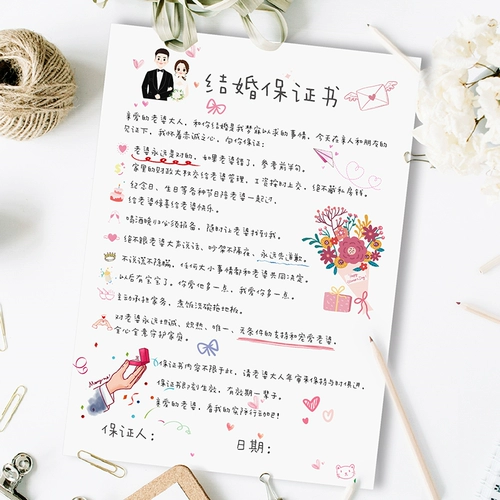 结婚保证书
亲爱的老婆大人，和你结婚是我梦寐以求的事情，今天在亲人和朋友的
见证下，我怀着赤诚之心，向你保证：
老婆永远是对的，如果老婆错了，参考前半句。
家里的财政大权交给老婆管理，工资按时上交，绝不藏私房钱。
纪念日、生日等各种节日陪老婆一起过，
给老婆惊喜给老婆快乐。
喝酒晚归必须报备，随时让老婆找到我。
绝不跟老婆大声说话，吵架不隔夜、永远先道歉。
不说谎不隐瞒，任何大小事情都和老婆共同决定。
以后有宝宝了，你爱他多一点，我爱你多一点。
主动承担家务，煮饭洗碗拖地板。
对老婆永远坦诚、炽热、唯一，无条件的支持和宠爱老婆。
全心全意守护家庭。
保证书内容不限于此，请老婆大人年审来保持与时俱进。
保证书即刻生效，有效期一辈子。
亲爱的老婆，看我的实际行动吧！
保证人：
日期：